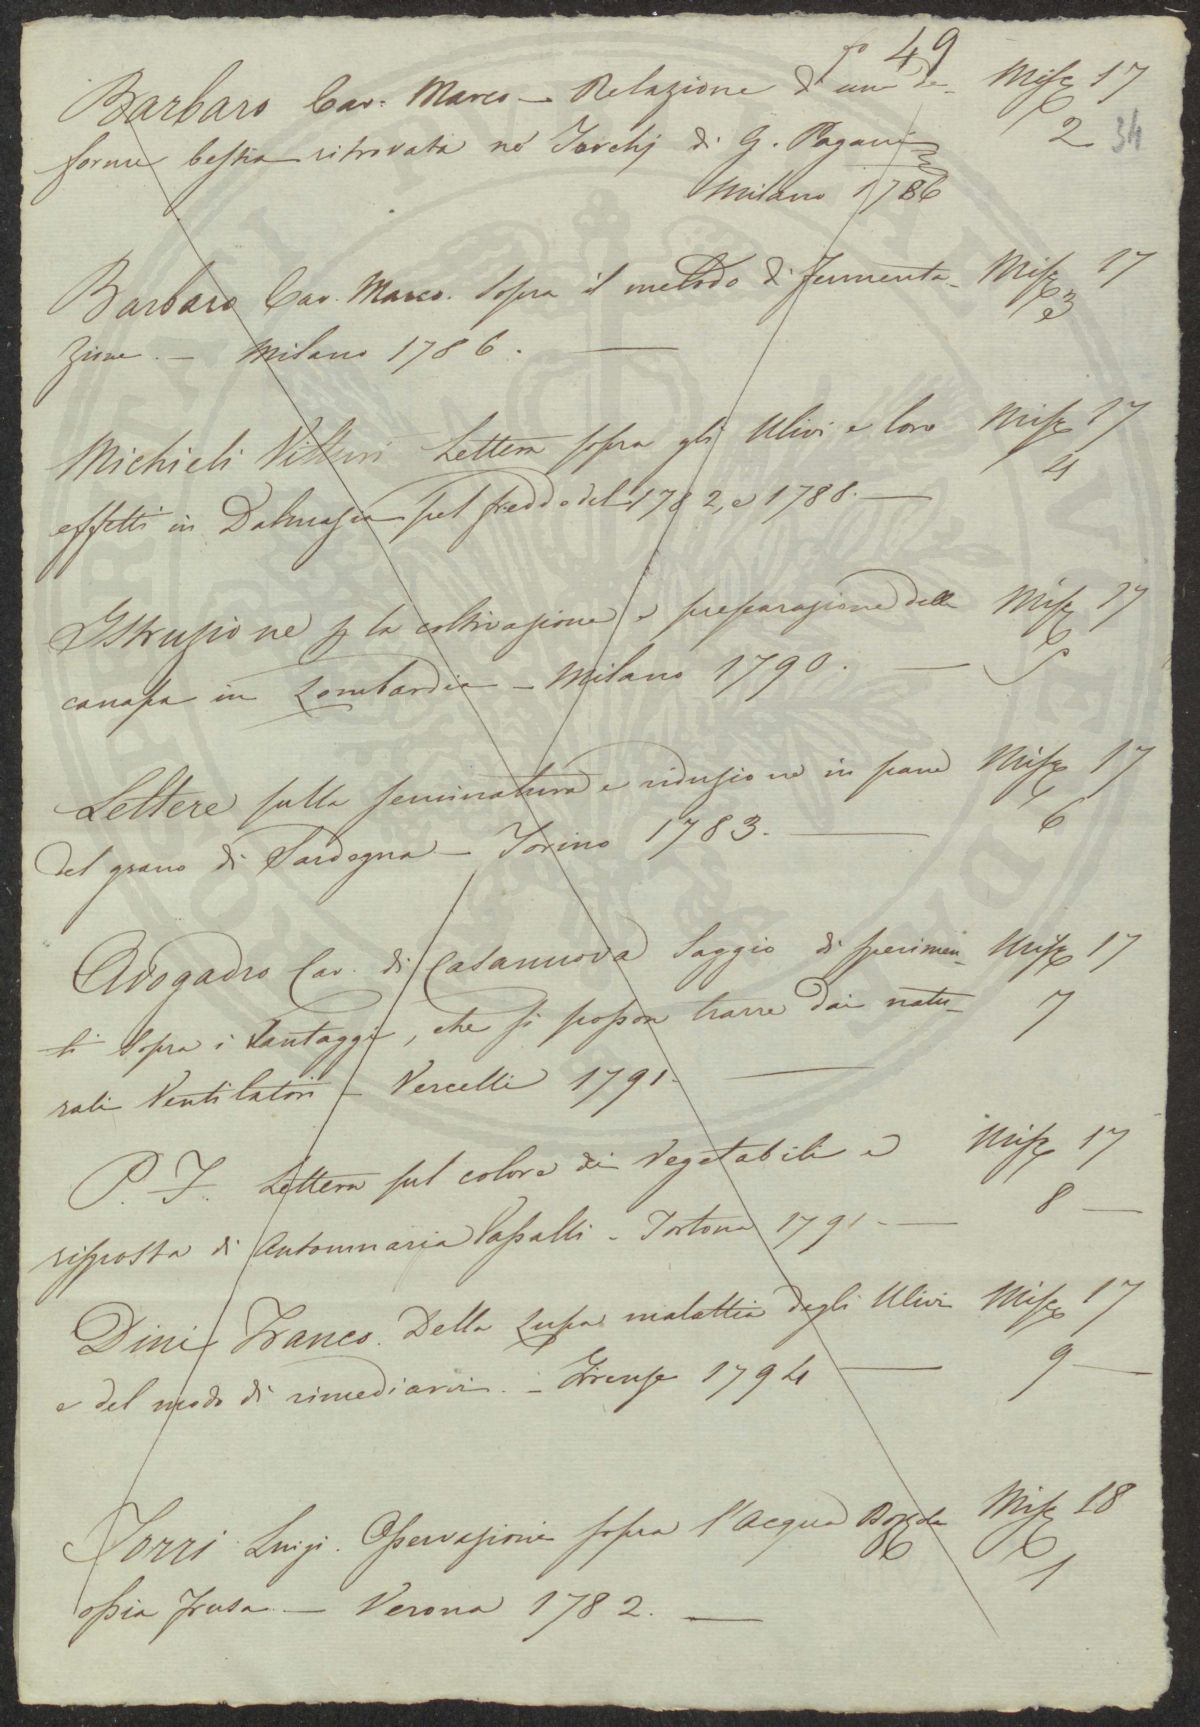 fo 49
34
Barbaro Cav: Marco — Relazione d'una de- Misc 17
forme bestia ritrovata ne' Torchj di G. Pagani 2
Milano 1786
Barbaro Cav. Marco. Sopra il metodo di fermenta- Misc 17
zione. — Milano 1786. — 3
Michieli Vitturi Lettera sopra gli Ulivi e loro Misc 17
effetti in Dalmazia pel freddo del 1782, e 1788. — 4
Istruzione per la coltivazione e preparazione della Misc 17
canapa in Lombardia — Milano 1790. — 5
Lettere sulla seminatura e riduzione in pane Misc 17
del grano di Sardegna — Torino 1783. — 6
Avogadro Cav. di Casanuova Saggio di sperimen- Misc 17
ti sopra i Vantaggi, che si posson trarre dai natu- 7
rali Ventilatori — Vercelli 1791. —
P. F. Lettera sul colore dei Vegetabili e Misc 17
risposta di Antonmaria Vassalli - Tortona 1791. — 8 —
Dini Franco. Della Lupa malattia degli Ulivi Misc 17
e del modo di rimediarvi. — Firenze 1794 — 9 —
Torri Luigi. Osservazioni sopra l'Acqua Misc 18
ossia — Verona 1782. — 1